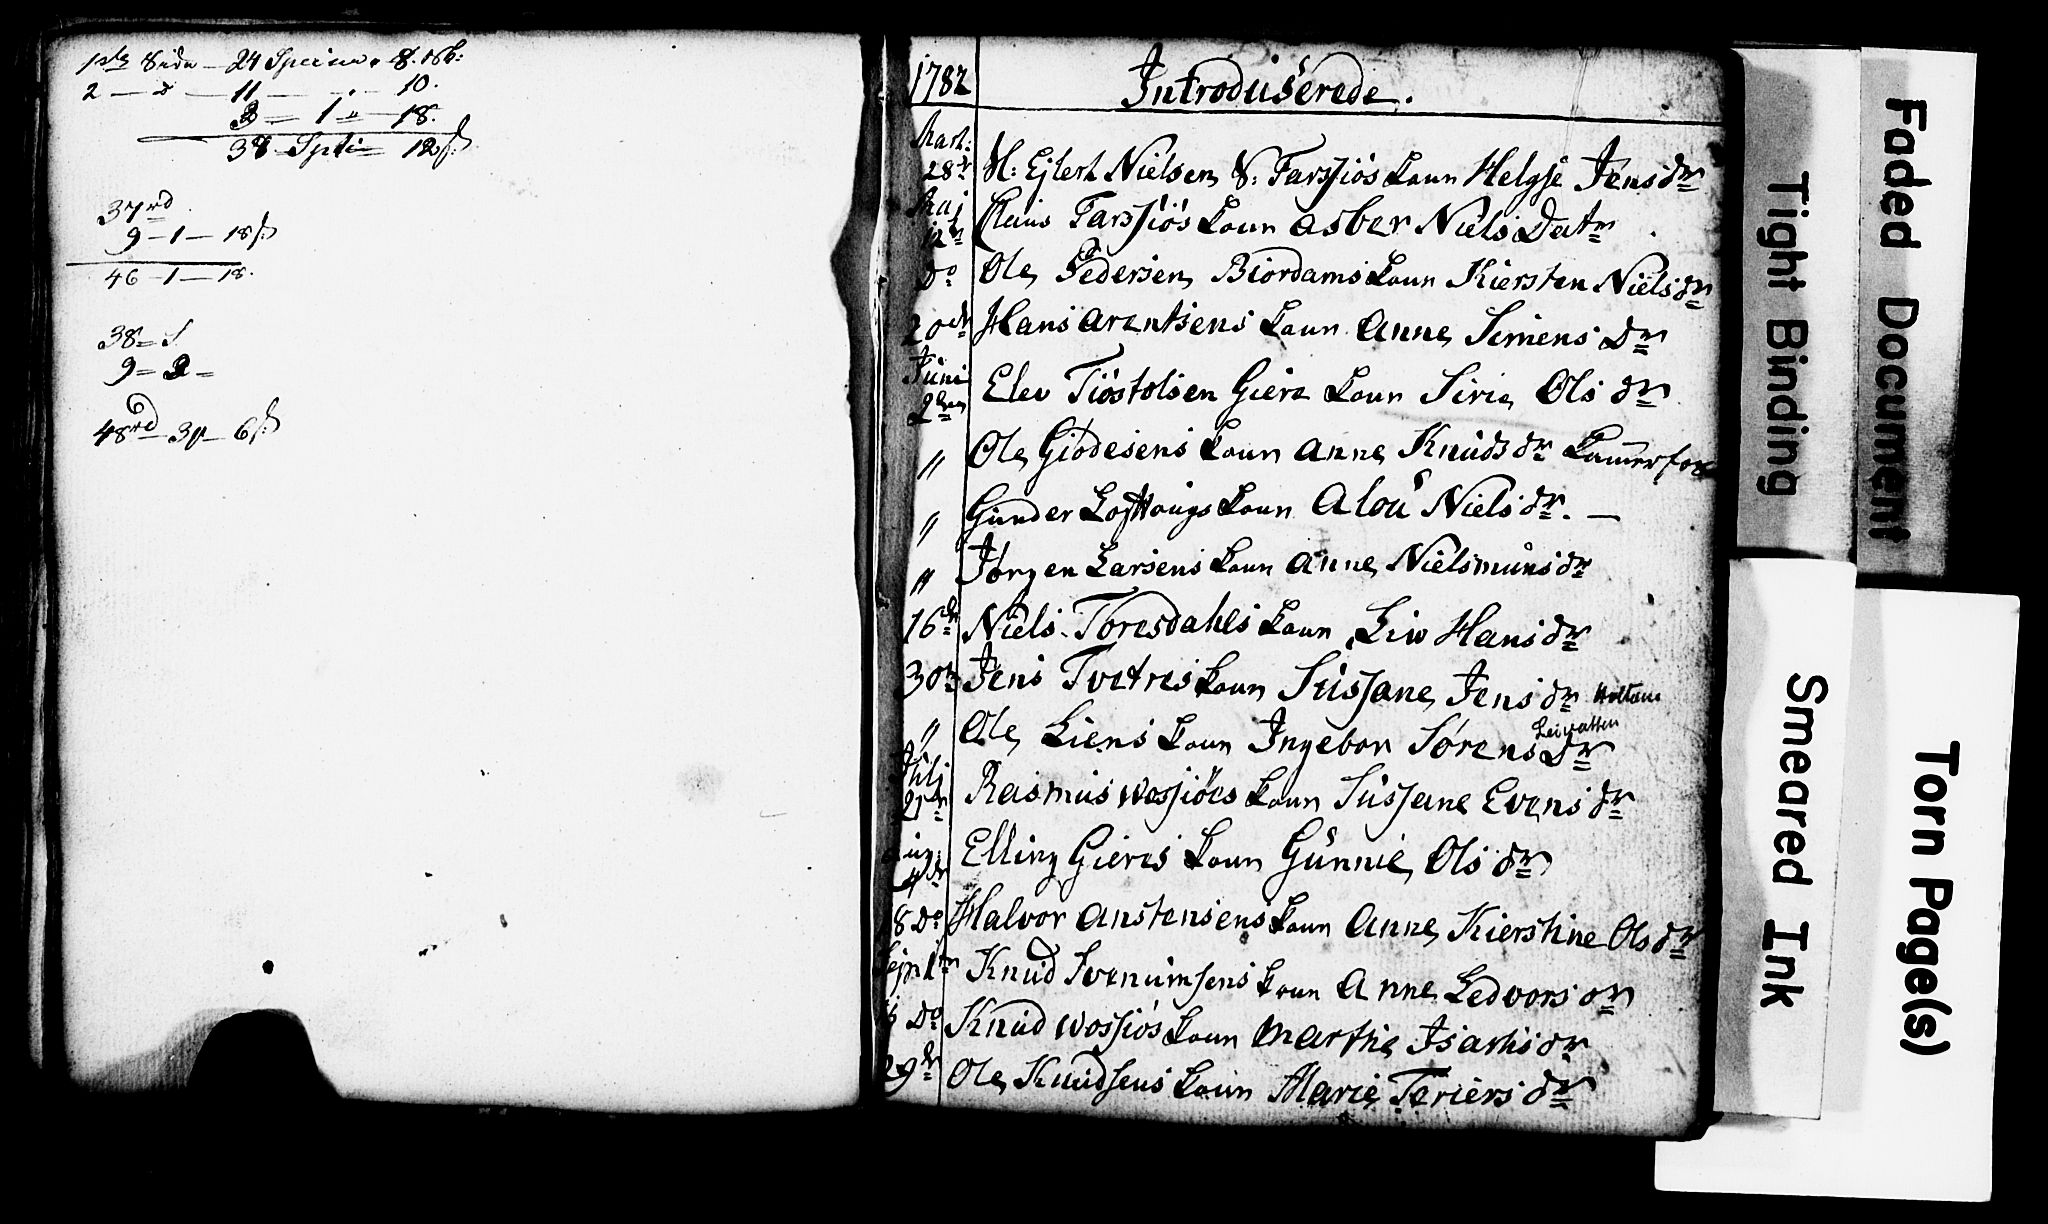 1ste Side – 24 Specier. 8. sk:
2 — d — 11 — . — 10.
3 = 1 " — 18.
38 Spti = 12 s:
37 rd
9 – 1 – 18 s:
46 – 1 – 18.
38 =
9 = 2 =
48 rd – 3 – 6 s:
1782
Introduserede.
Mart: 28de H: Ejlert Nielsen N: Farsjøs Koun Helgje Jens dr
Maj 12te Claus Farsjøs Koun Asber Niels Datr
do Ole Pedersen Biordams Koun Kiersten Niels dr
20de Hans Arentsens Koun Anne Simens Dr
Juni 2den Elev Tiøstolsen Giere Koun Sirie Ols dr
" Ole Giødesens Koun Anne Knuds dr
" Gunder Lofthougs Koun Alou Niels dr. —
" Jørgen Larsens Koun Anne Nielsmuns dr
16de Niels Toresdahls Koun Liw Hans dr
30te Jens Tvetres Koun Susjane Jens dr Holtane
" Ole Liens Koun Ingebor Sørens Dr Leivatten
Juli 21de Rasmus Wosjøes Koun Susjane Evens dr
Aug: 4de Elling Gieres Koun Gunnie Ols dr
18 Do Halvor Anstensens Koun Anne Kierstine Ols dr
Sept 1te Knud Svenumsens Koun Anne Ledvors dr
Do Knud Wosjøs Koun Marthe Isachs dr
29de Ole Knudsens Koun Marie Teriers dr
Faded Document
Tight Binding
Smeared Ink
Torn Page(s)